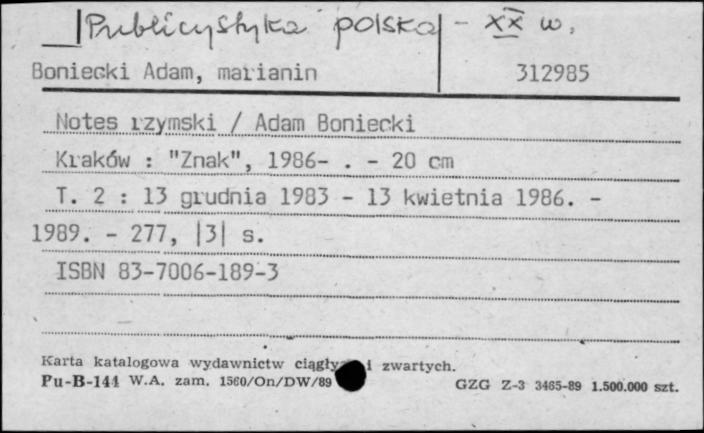 Publicystyka polska - XX w.
Boniecki Adam, marianin 312985
Notes rzymski / Adam Boniecki
Kraków : "Znak", 1986- . - 20 cm
T. 2 : 13 grudnia 1983 - 13 kwietnia 1986. -
1989. - 277, |3| s.
ISBN 83-7006-189-3
Karta katalogowa wydawnictw ciągły i zwartych.
Pu-B-144 W.A. zam. 1560/On/DW/89 GZG Z-3 3465-89 1.500.000 szt.